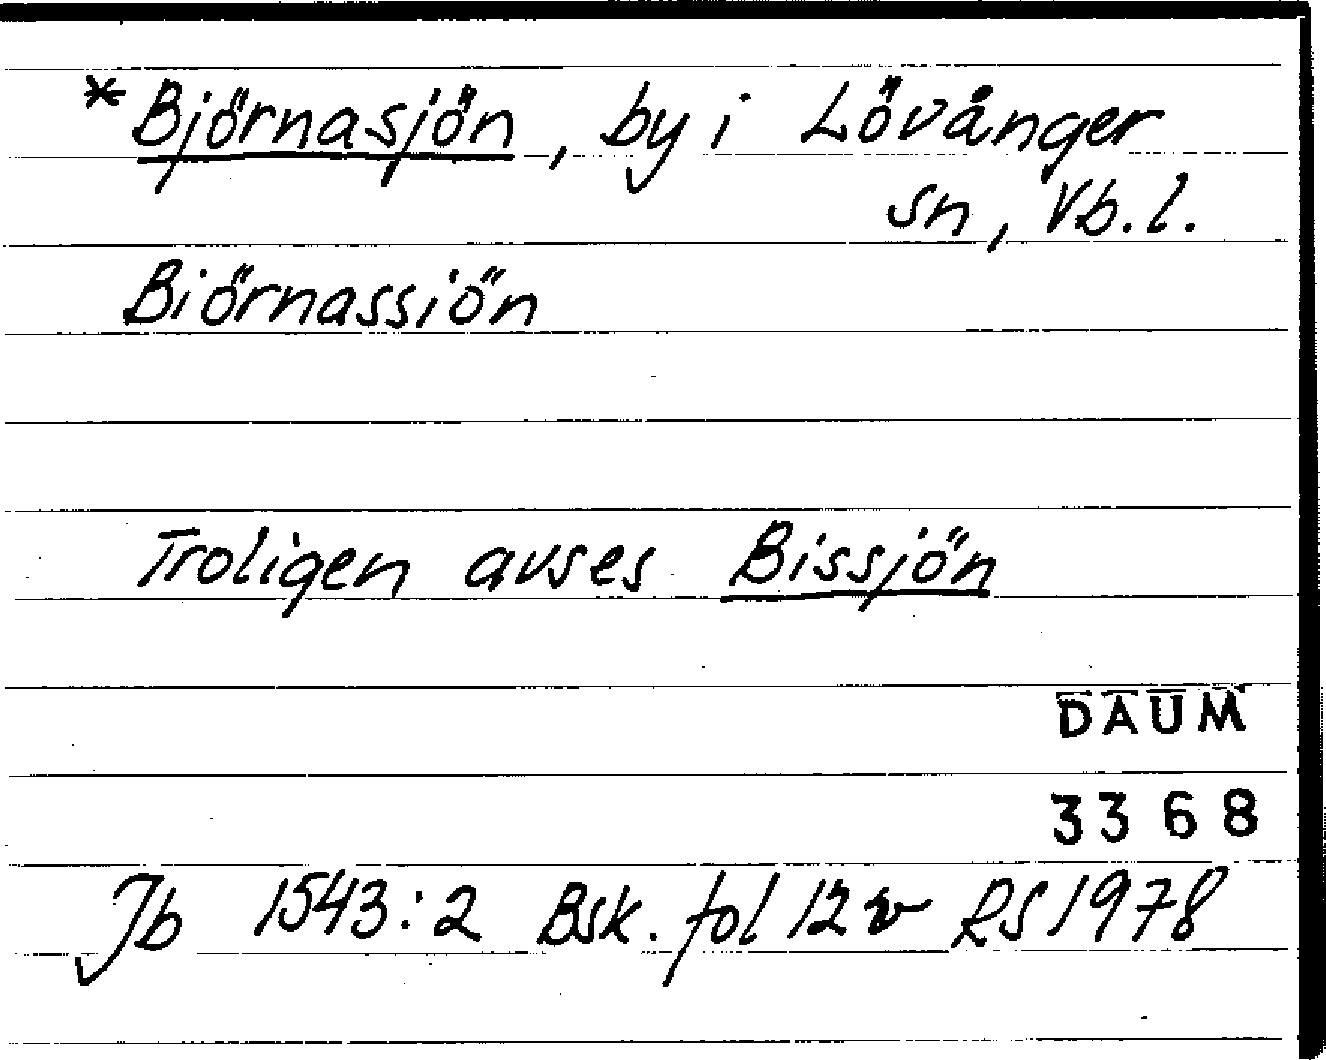 *Björnasjön, by i Lövånger
sn, Vb.l.
Biörnassiön
Troligen avses Bissjön
DAUM
3368
Jb 1543:2 Bsk. fol 12 v RS 1978